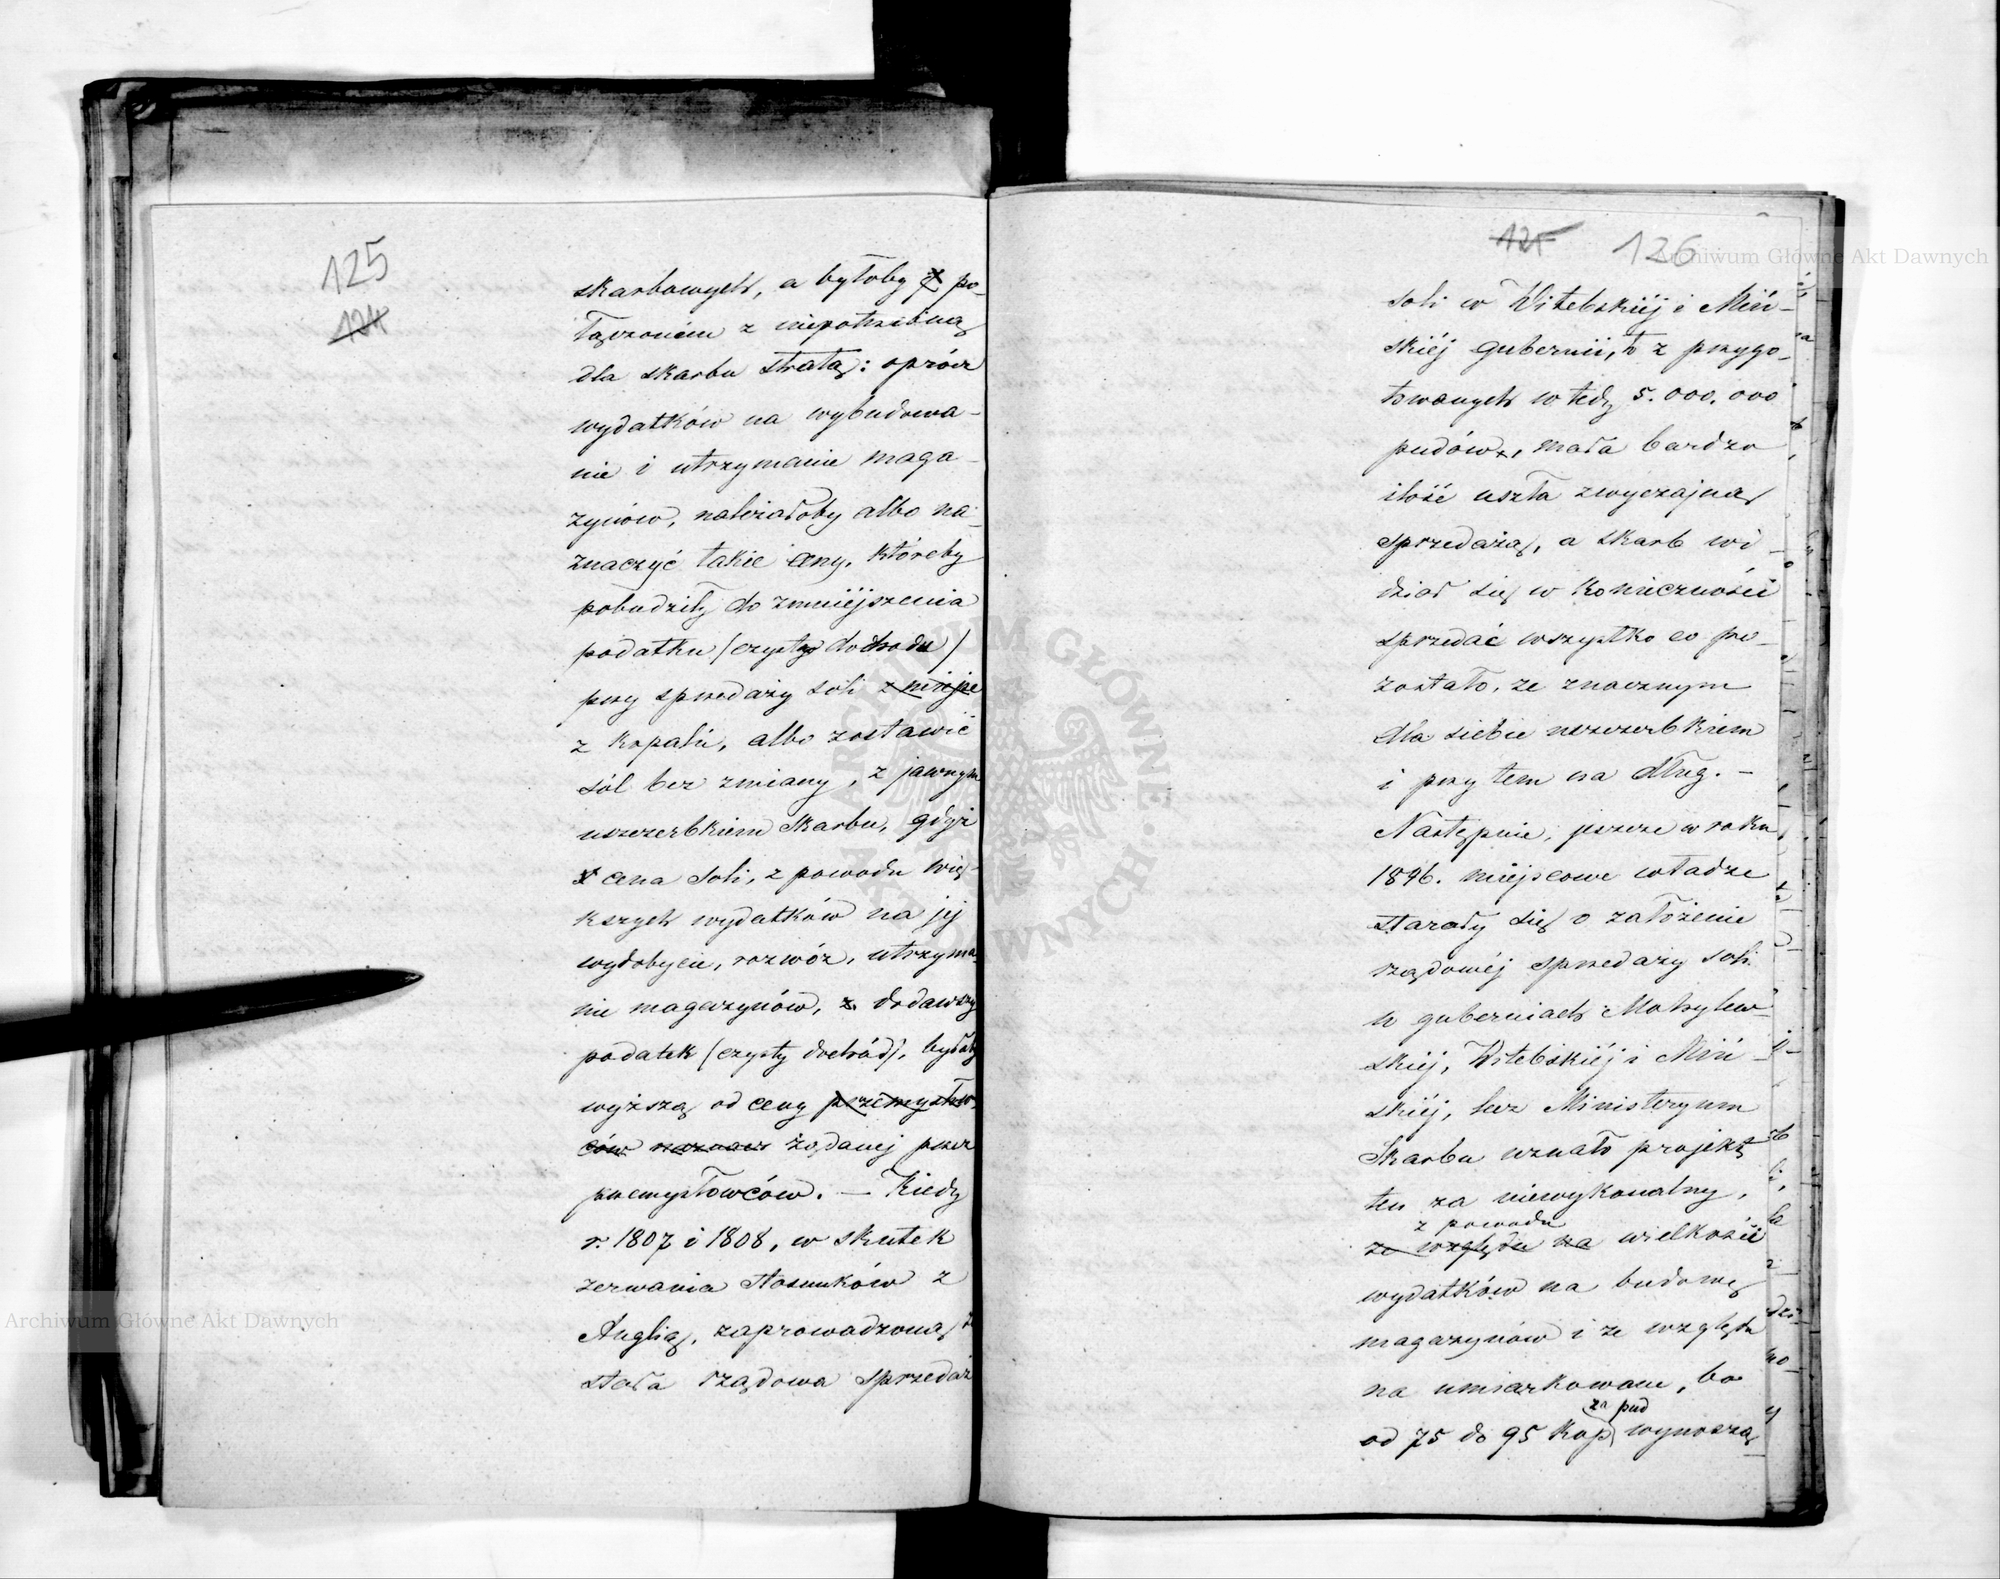 125
124
skarbowych, a byłoby z po-
łączoném z niepotrzebną
dla skarbu stratą: oprócz
wydatków na wybudowa-
nie i utrzymanie maga-
zynów, należałoby albo na-
znaczyć takie ceny, któreby
pobudziły do zmniéjszenia
podatku (czystego dochodu)
przy sprzedaży soli z miejsc
z kopalń, albo zostawić
sól bez zmiany, z jawnym
uszczerbkiem Skarbu, gdyż
cena soli, z powodu więk-
kszych wydatków na jéj
wydobycie, rozwóz, utrzyma-
nie magazynów, z dodawszy
podatek (czysty dochód), byłaby
wyższą od ceny przemysłow-
ców żądanej przez
przemysłowców. — Kiedy
r. 1807 i 1808, w skutek
zerwania stosunków z
Anglią, zaprowadzoną
stała rządowa sprzedaż
125 126
soli w Witebskiéj i Miń-
skiéj gubernii, to z przygo-
towanych wtedy 5.000.000
pudów, mała bardzo
ilość uszła zwyczajną
sprzedażą, a skarb wi-
dział się w konieczności
sprzedać wszystko co po-
zostało, ze znacznym
dla siebie uszczerbkiem
i przytem na dług. —
Następnie, jeszcze w roku
1846. miéjscowe władze
starały się o założenie
rządowéj sprzedaży soli
w guberniach Mohylew-
skiej, Witebskiéj i Miń-
skiéj, lecz Ministeryum
Skarbu uznało projekt
ten za niewykonalny,
z powodu
ze względu na wielkości
wydatków na budowę
magazynów i ze względu
na umiarkowane, bo
za pud
od 75 do 95 kop. wynoszą
Archiwum Główne Akt Dawnych
Archiwum Główne Akt Dawnych
ARCHIWUM GŁÓWNE AKT DAWNYCH